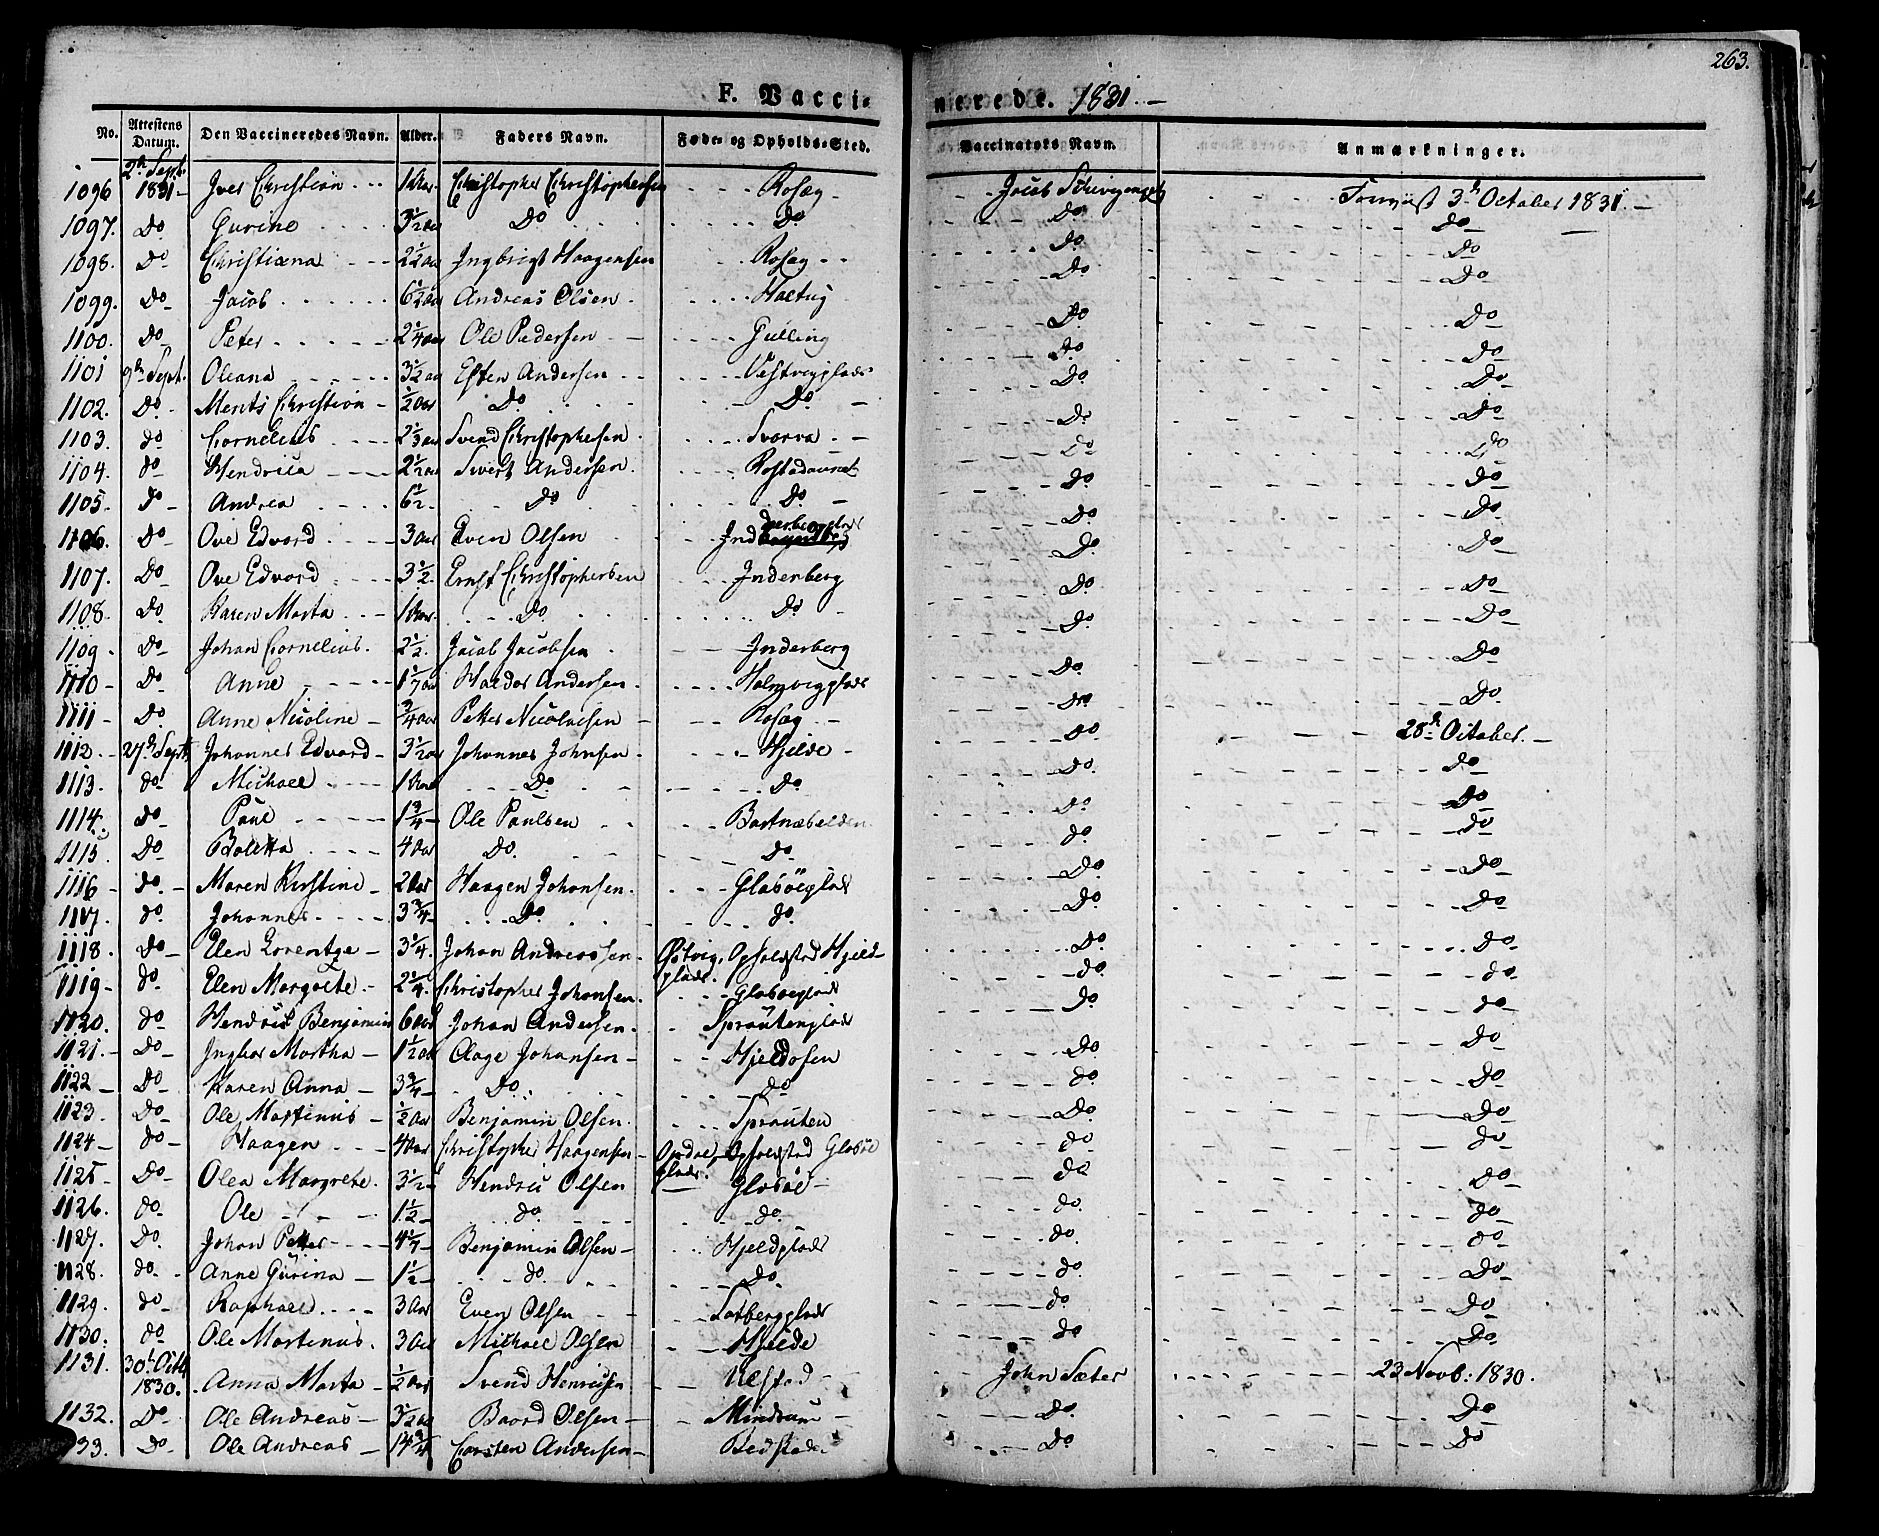 263.
F. Vaccinerede. 1831. –
No. Attestens Datum. Den Vaccineredes Navn. Alder. Faders Navn. Føde- og Opholds-Sted. Vaccinators Navn. Anmærkninger.
1096 2den Sept. 1831 – Iver Christian 1 Aar. Christopher Christophersen Rosæg Jacob 3 October 1831. –
1097. Do Gurine 3 1/2 Aar Do Do. Do Do
1098. Do Christiana 2 1/2 Aar Ingbrigt Haagensen Rosæg Do Do
1099. Do Jacob 6 1/2 Aar Andreas Olsen Haltug Do Do
1100. Do Peter 2 1/4 Aar Ole Pedersen Gulling Do Do
1101 9de Sept. Oleana 3 1/2 Aar Esten Andersen Vestvigplads Do Do
1102. Do Ments Christian 1/2 Aar Do. Do. Do Do
1103. do Cornelius 2 1/3 Aar Svend Christophersen Svorva Do Do
1104. do Hendrica 2 1/2 Aar Sivert Andersen. Do Do
1105. do Andrea 6 1/2. Do Do. Do Do
1106. Do Ove Edvard 3 Aar Even Olsen Do Do
1107. Do Ove Edvard 3 1/2. Ernst Christophersen Inderberg Do Do
1108. Do Karen Marta 1 Aar. Do. Do Do Do
1109 Do Johan Cornelius. 2 1/2. Jacob Jacobsen Inderberg Do Do
1110 Do Anne 1 1/7 Aar Haldor Andersen. Holmvigplads Do Do
1111 Do. Anne Nicoline 3/4 Aar Petter Nicolaisen Rosæg Do Do
1112. 27de Sept. Johannes Edvard 3 1/2 Aar Johannes Johnsen Hjelde Do 28de October. –
1113. do Michael 1 Aar Do Do Do Do
1114. Do Paul 1 3/4 Ole Paulsen Do Do
1115. Do Boletta 4 Aar Do. Do do Do
1116 do. Maren Kirstine 2 Aar Haagen Johansen. Glabøeplads Do Do
1117. do Johannes 3 3/4 Do. do. Do Do
1118. Do Elen Lorentze 3 1/4. Johan Andreassen Østvig, Opholdsted Hjeldplads. Do Do
1119 do. Elen Margrete 2 1/4. Christopher Johansen. Glabøeplads do do
1120. do Hendrik Benjamin 6 Aar Johan Andersen. Sprautenplads do do
1121. Do Ingbor Martha 1 1/2 Aar Aage Johansen Hjeldosen Do Do
1122 Do Karen Anna 3 3/4 Do. Do do Do
1123. Do Ole Martinus 1/2 Aar Benjamin Olsen. Sprauten Do Do
1124 do Haagen 4 Aar Christopher Haagensen Opdal, Opholdsted Glabøe plads. do do
1125 Do Olea Margrete. 3 1/2 Hendric Olsen Glabøe do Do
1126. do Ole 1 1/2 do. do. do do
1127. Do. Johan Petter 4 1/7 Benjamin Olsen Hjeldplads do. do
1128. do. Anne Gurina 1 1/2 do. Do. do Do
1129. do Raphael 3 Aar Even Olsen do. Do
1130. do Ole Martinus. 3 Aar Michael Olsen Hjelde do Do
1131. 30te Octb. 1830. Anna Marta 1/2 Aar Svend Henrichsen Ulstad John Sæter 23 Novb: 1830.
1132. Do Ole Andreas 3 1/2 Aar Baard Olsen Mindrum Do. Do
33. Do Ole Andreas 14 3/4 Carsten Andersen Do. Do